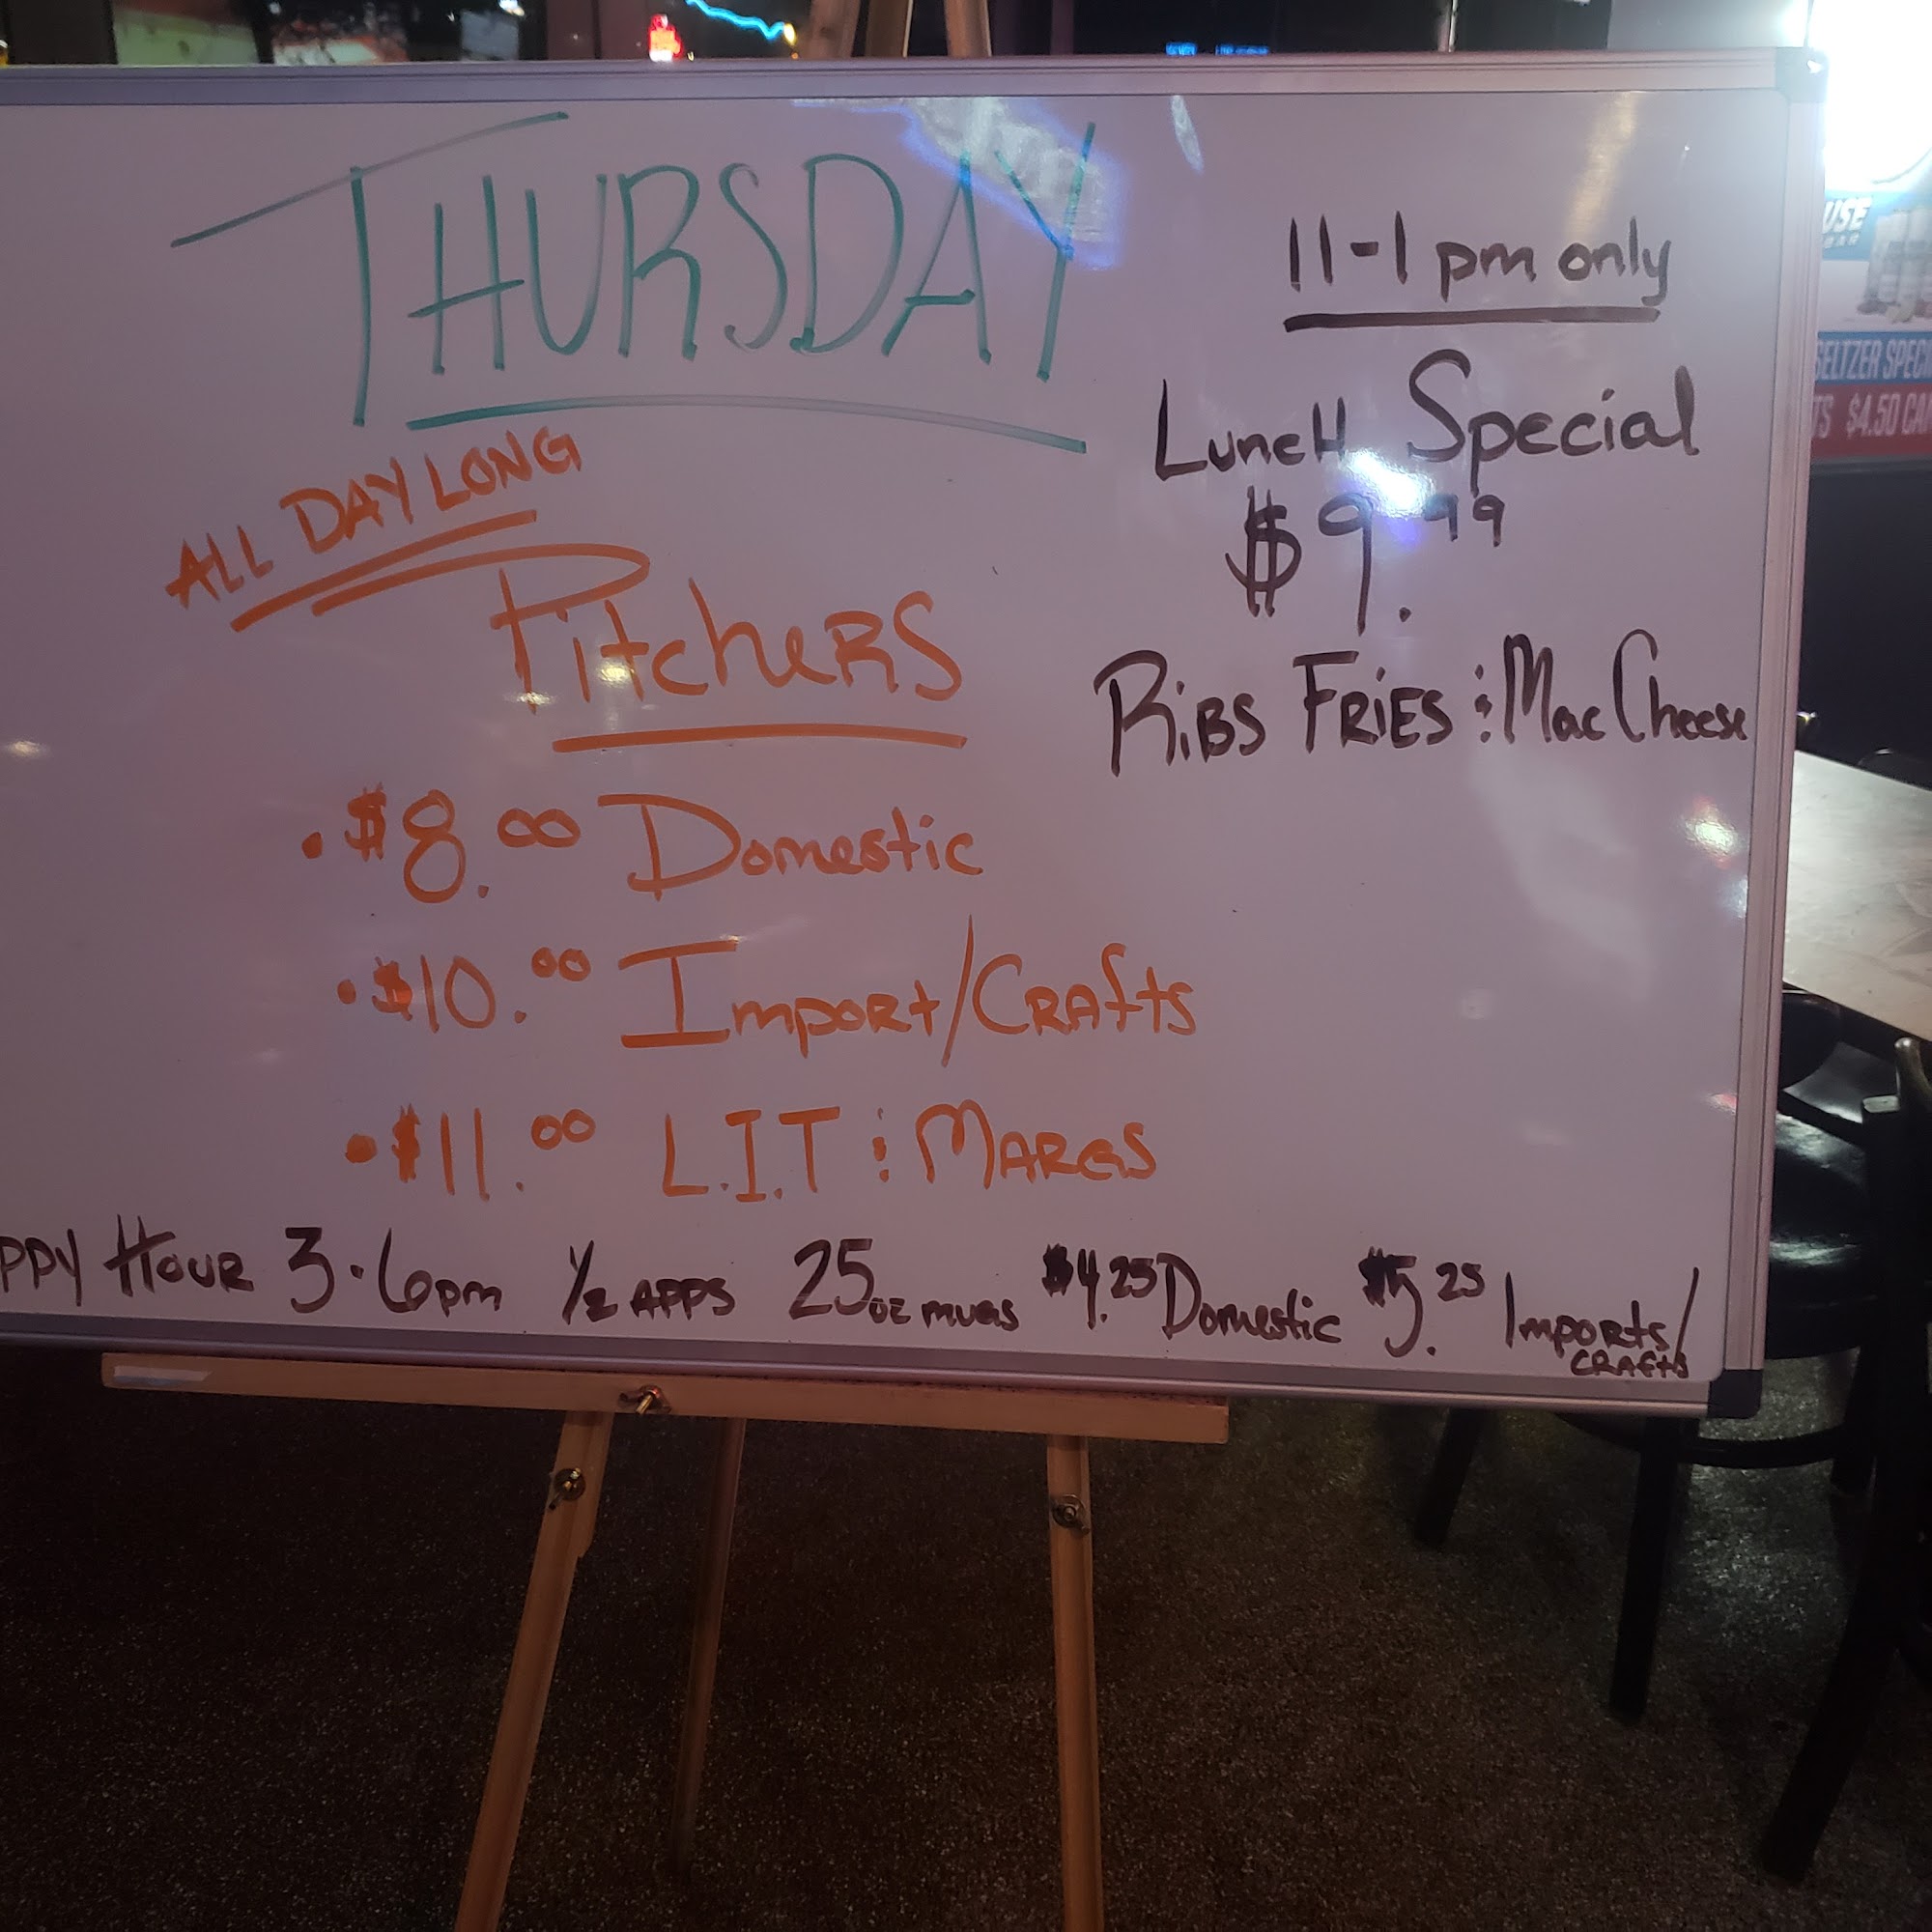 THURSDAY
ALL DAY LONG
PitcheRS
• $8.00 Domestic
• $10.00 Import/CRAfts
• $11.00 L.I.T & MARGS
11-1 pm only
LuncH Special
$9.99
RiBS FRiES & Mac Cheese
PPY HOUR 3-6pm 1/2 APPS 25oz mugs $4.25 Domestic $5.25 Imports/
CRAfts
USE
BAR
SELTZER SPECI
TS $4.50 CAN